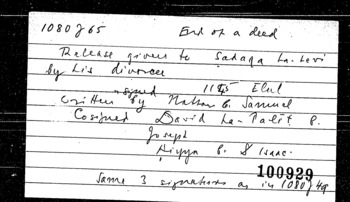 1080 J 65 End of a deed
Release given to Sadaqa ha-Levi
by his divorcee
signed 1145 Elul
written by Nathan b. Samuel
Cosigned David ha-Talit b.
Joseph
Hiyya b. Isaac
100929
Same 3 signatures as in 1080 J